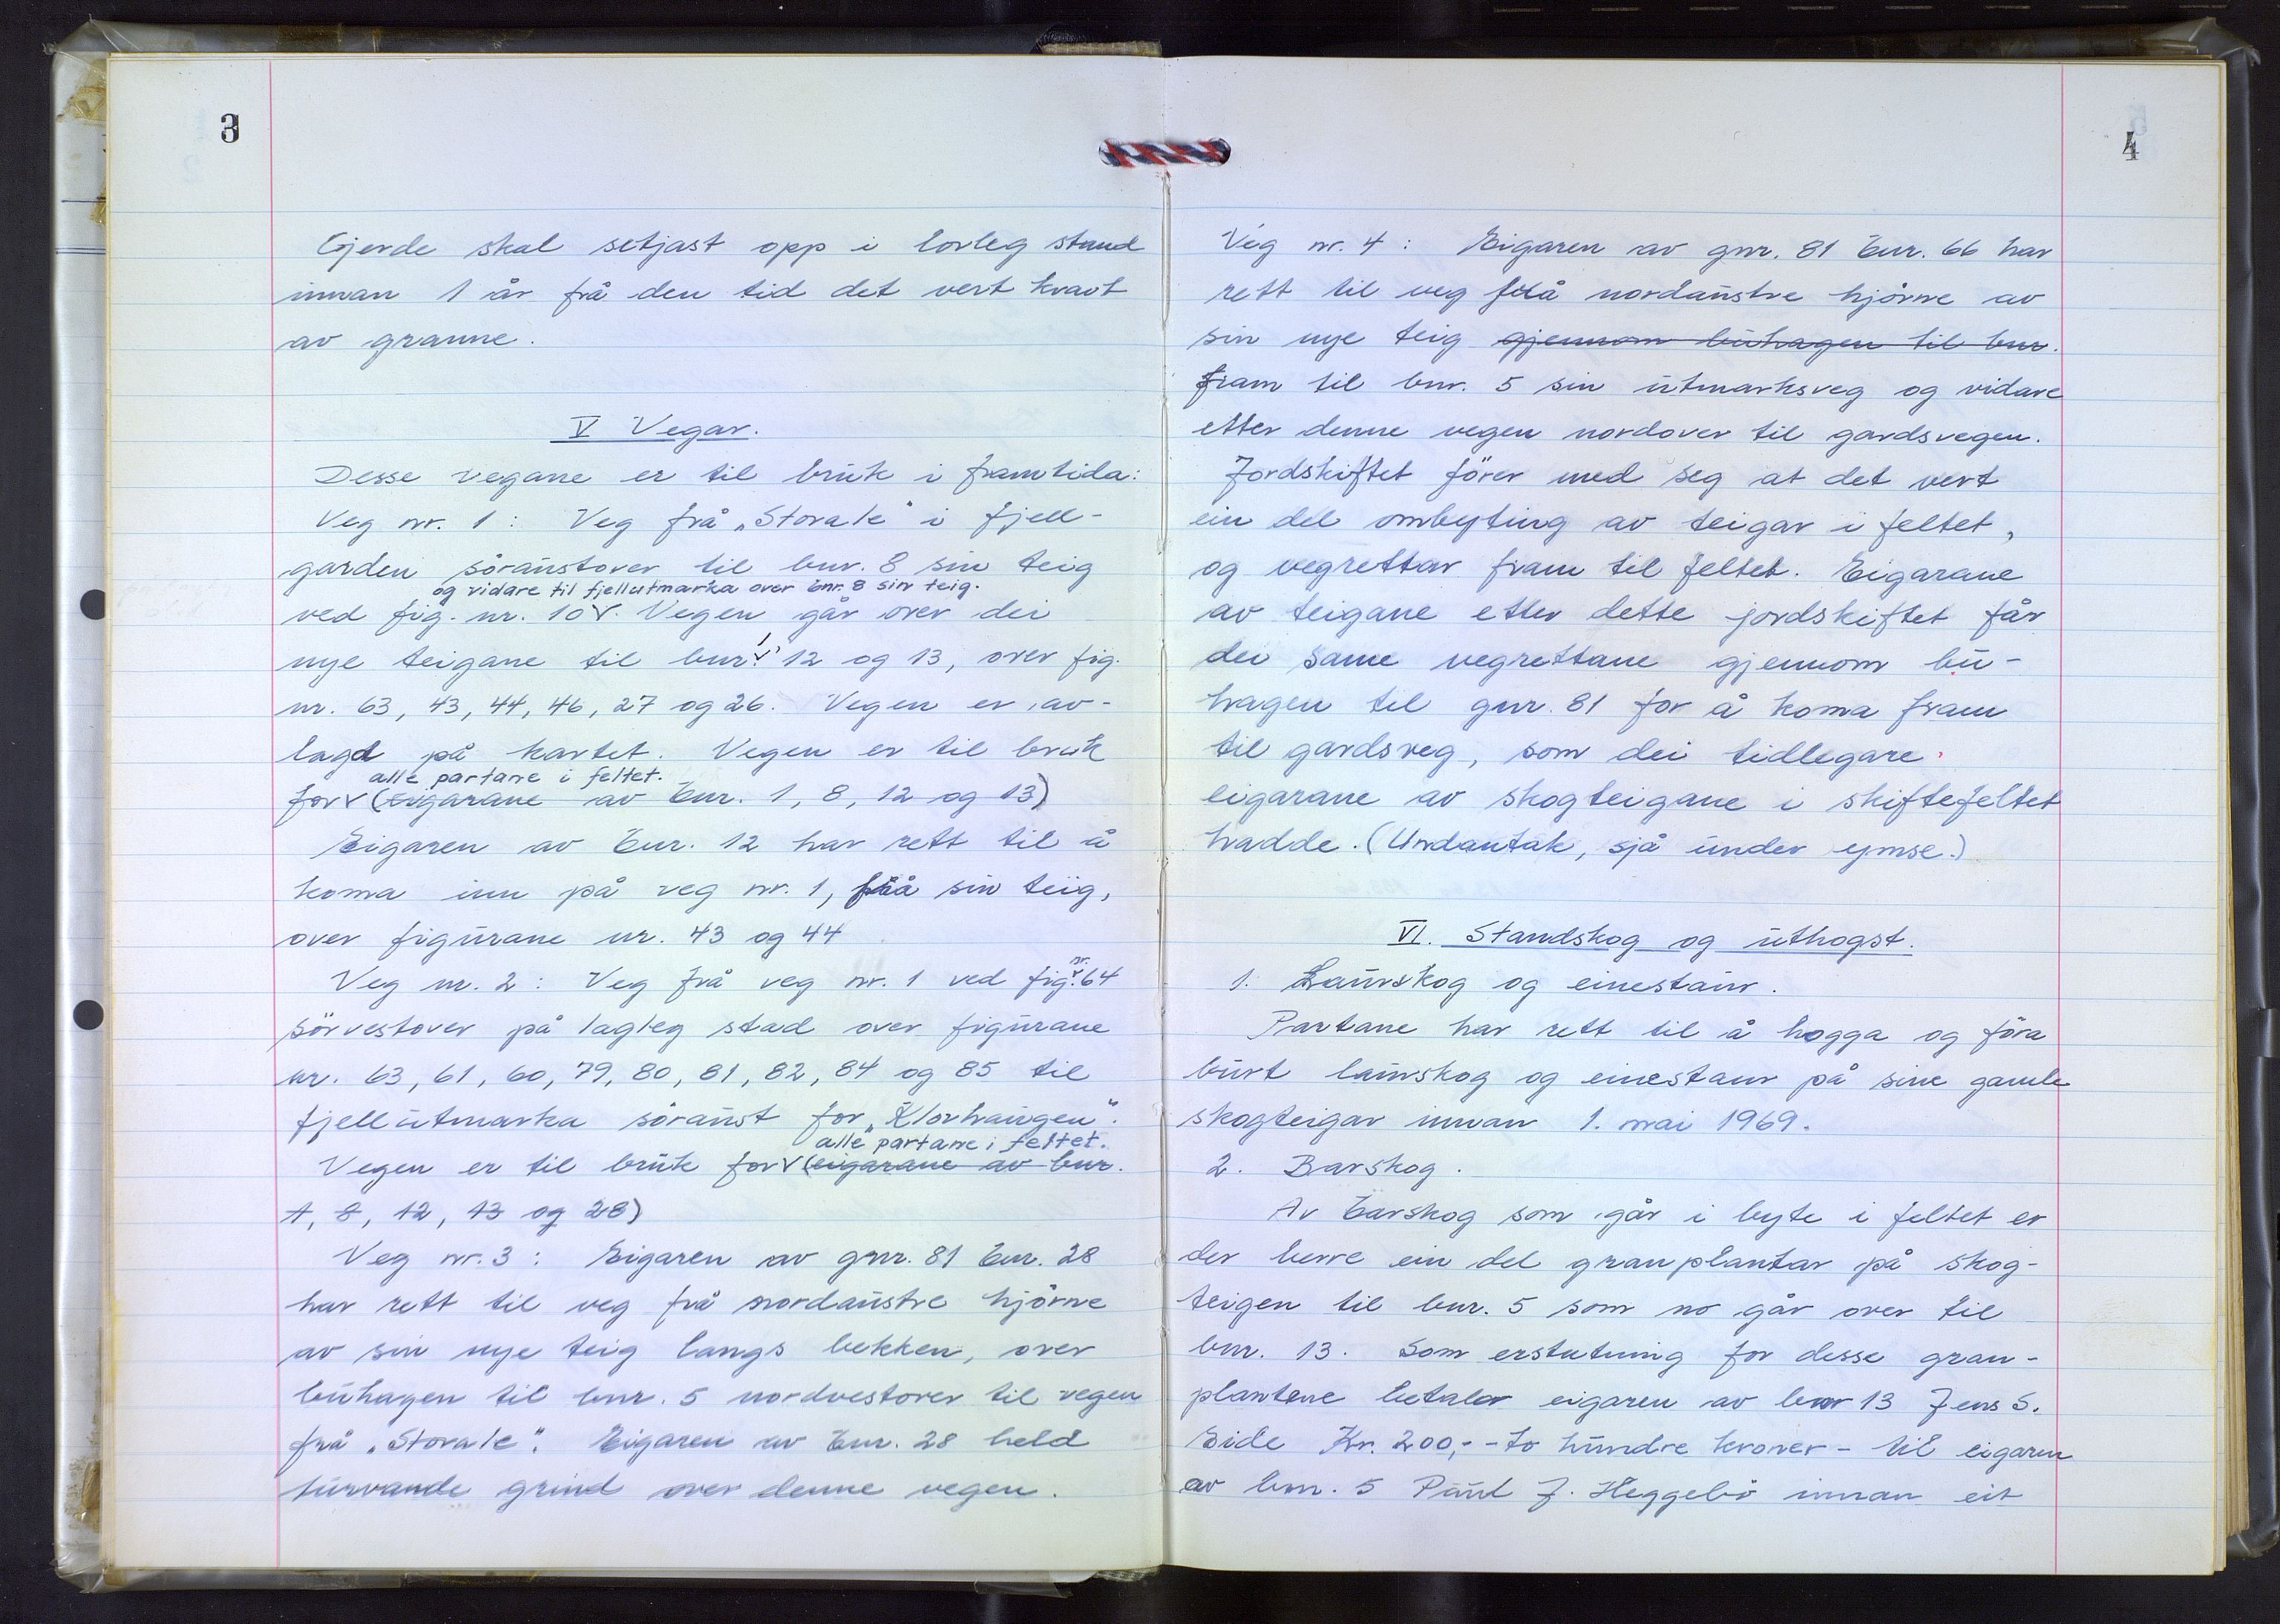 3
Gjerde skal setjast opp i lovleg stand
innan 1 år frå den tid det vert kravt
av granne.
V Vegar.
Desse vegane er til bruk i framtida:
Veg nr. 1: Veg frå „Storale" i fjell-
garden söraustover til bnr. 8 sin teig
og vidare til fjellutmarka over bnr. 8 sin teig.
ved fig. nr. 10 V. Vegen går over dei
nye teigane til bnr. 1, 12 og 13, over fig.
nr. 63, 43, 44, 46, 27 og 26. Vegen er av-
lagd på kartet. Vegen er til bruk
alle partane i feltet.
for V (eigarane av bnr. 1, 8, 12 og 13)
Eigaren av bnr. 12 har rett til å
koma inn på veg nr. 1, frå sin teig,
over figurane nr. 43 og 44
Veg nr. 2: Veg frå veg nr. 1 ved fig. nr. 64
sörvestover på lagleg stad over figurane
nr. 63, 61, 60, 79, 80, 81, 82, 84 og 85 til
fjellutmarka söraust for „Klovhaugen".
alle partane i feltet.
Vegen er til bruk for V (eigarane av bnr.
1, 8, 12, 13 og 28)
Veg nr. 3: Eigaren av gnr. 81 bnr. 28
har rett til veg frå nordaustre hjörne
av sin nye teig langs bekken, over
buhagen til bnr. 5 nordvestover til vegen
frå „Storale". Eigaren av bnr. 28 held
turvande grind over denne vegen.
4
Veg nr. 4: Eigaren av gnr. 81 bnr. 66 har
rett til veg frå nordaustre hjörne av
sin nye teig gjennom buhagen til bnr.
fram til bnr. 5 sin utmarksveg og vidare
etter denne vegen nordover til gardsvegen.
Jordskiftet förer med seg at det vert
ein del ombyting av teigar i feltet,
og vegrettar fram til feltet. Eigarane
av teigane etter dette jordskiftet får
dei same vegrettane gjennom bu-
hagen til gnr. 81 for å koma fram
til gardsveg, som dei tidlegare
eigarane av skogteigane i skiftefeltet
hadde. (Undantak, sjå under ymse.)
VI. Standskog og uthogst.
1. Lauvskog og einestaur.
Partane har rett til å hogga og föra
burt lauvskog og einestaur på sine gamle
skogteigar innan 1. mai 1969.
2. Barskog.
Av barskog som går i byte i feltet er
der berre ein del granplantar på skog-
teigen til bnr. 5 som no går over til
bnr. 13. Som erstatning for desse gran-
plantane betaler eigaren av bnr 13 Jens S.
Eide Kr. 200,- - to hundre kroner - til eigaren
av bnr. 5 Paul J. Heggebö innan eit